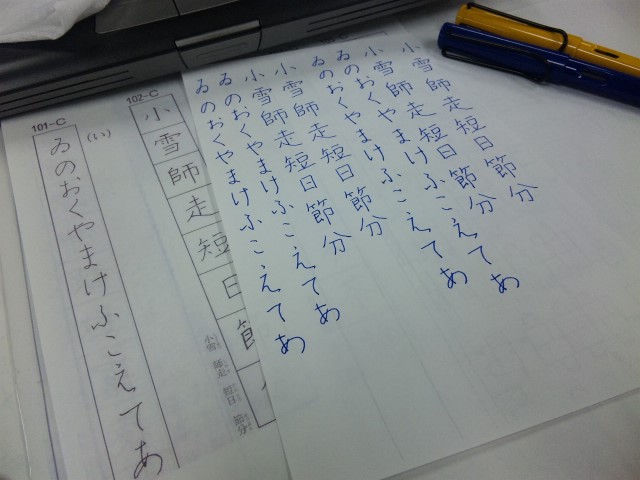 小雪師走短日節分
小雪師走短日節分
ゐのおくやまけふこえてあ
ゐのおくやまけふこえてあ
小雪師走短日節分
小雪師走短日節分
ゐのおくやまけふこえてあ
ゐのおくやまけふこえてあ
102-C
小雪師走短日節
小雪 師走 短日 節分
101-C
(い)
ゐのおくやまけふこえてあ